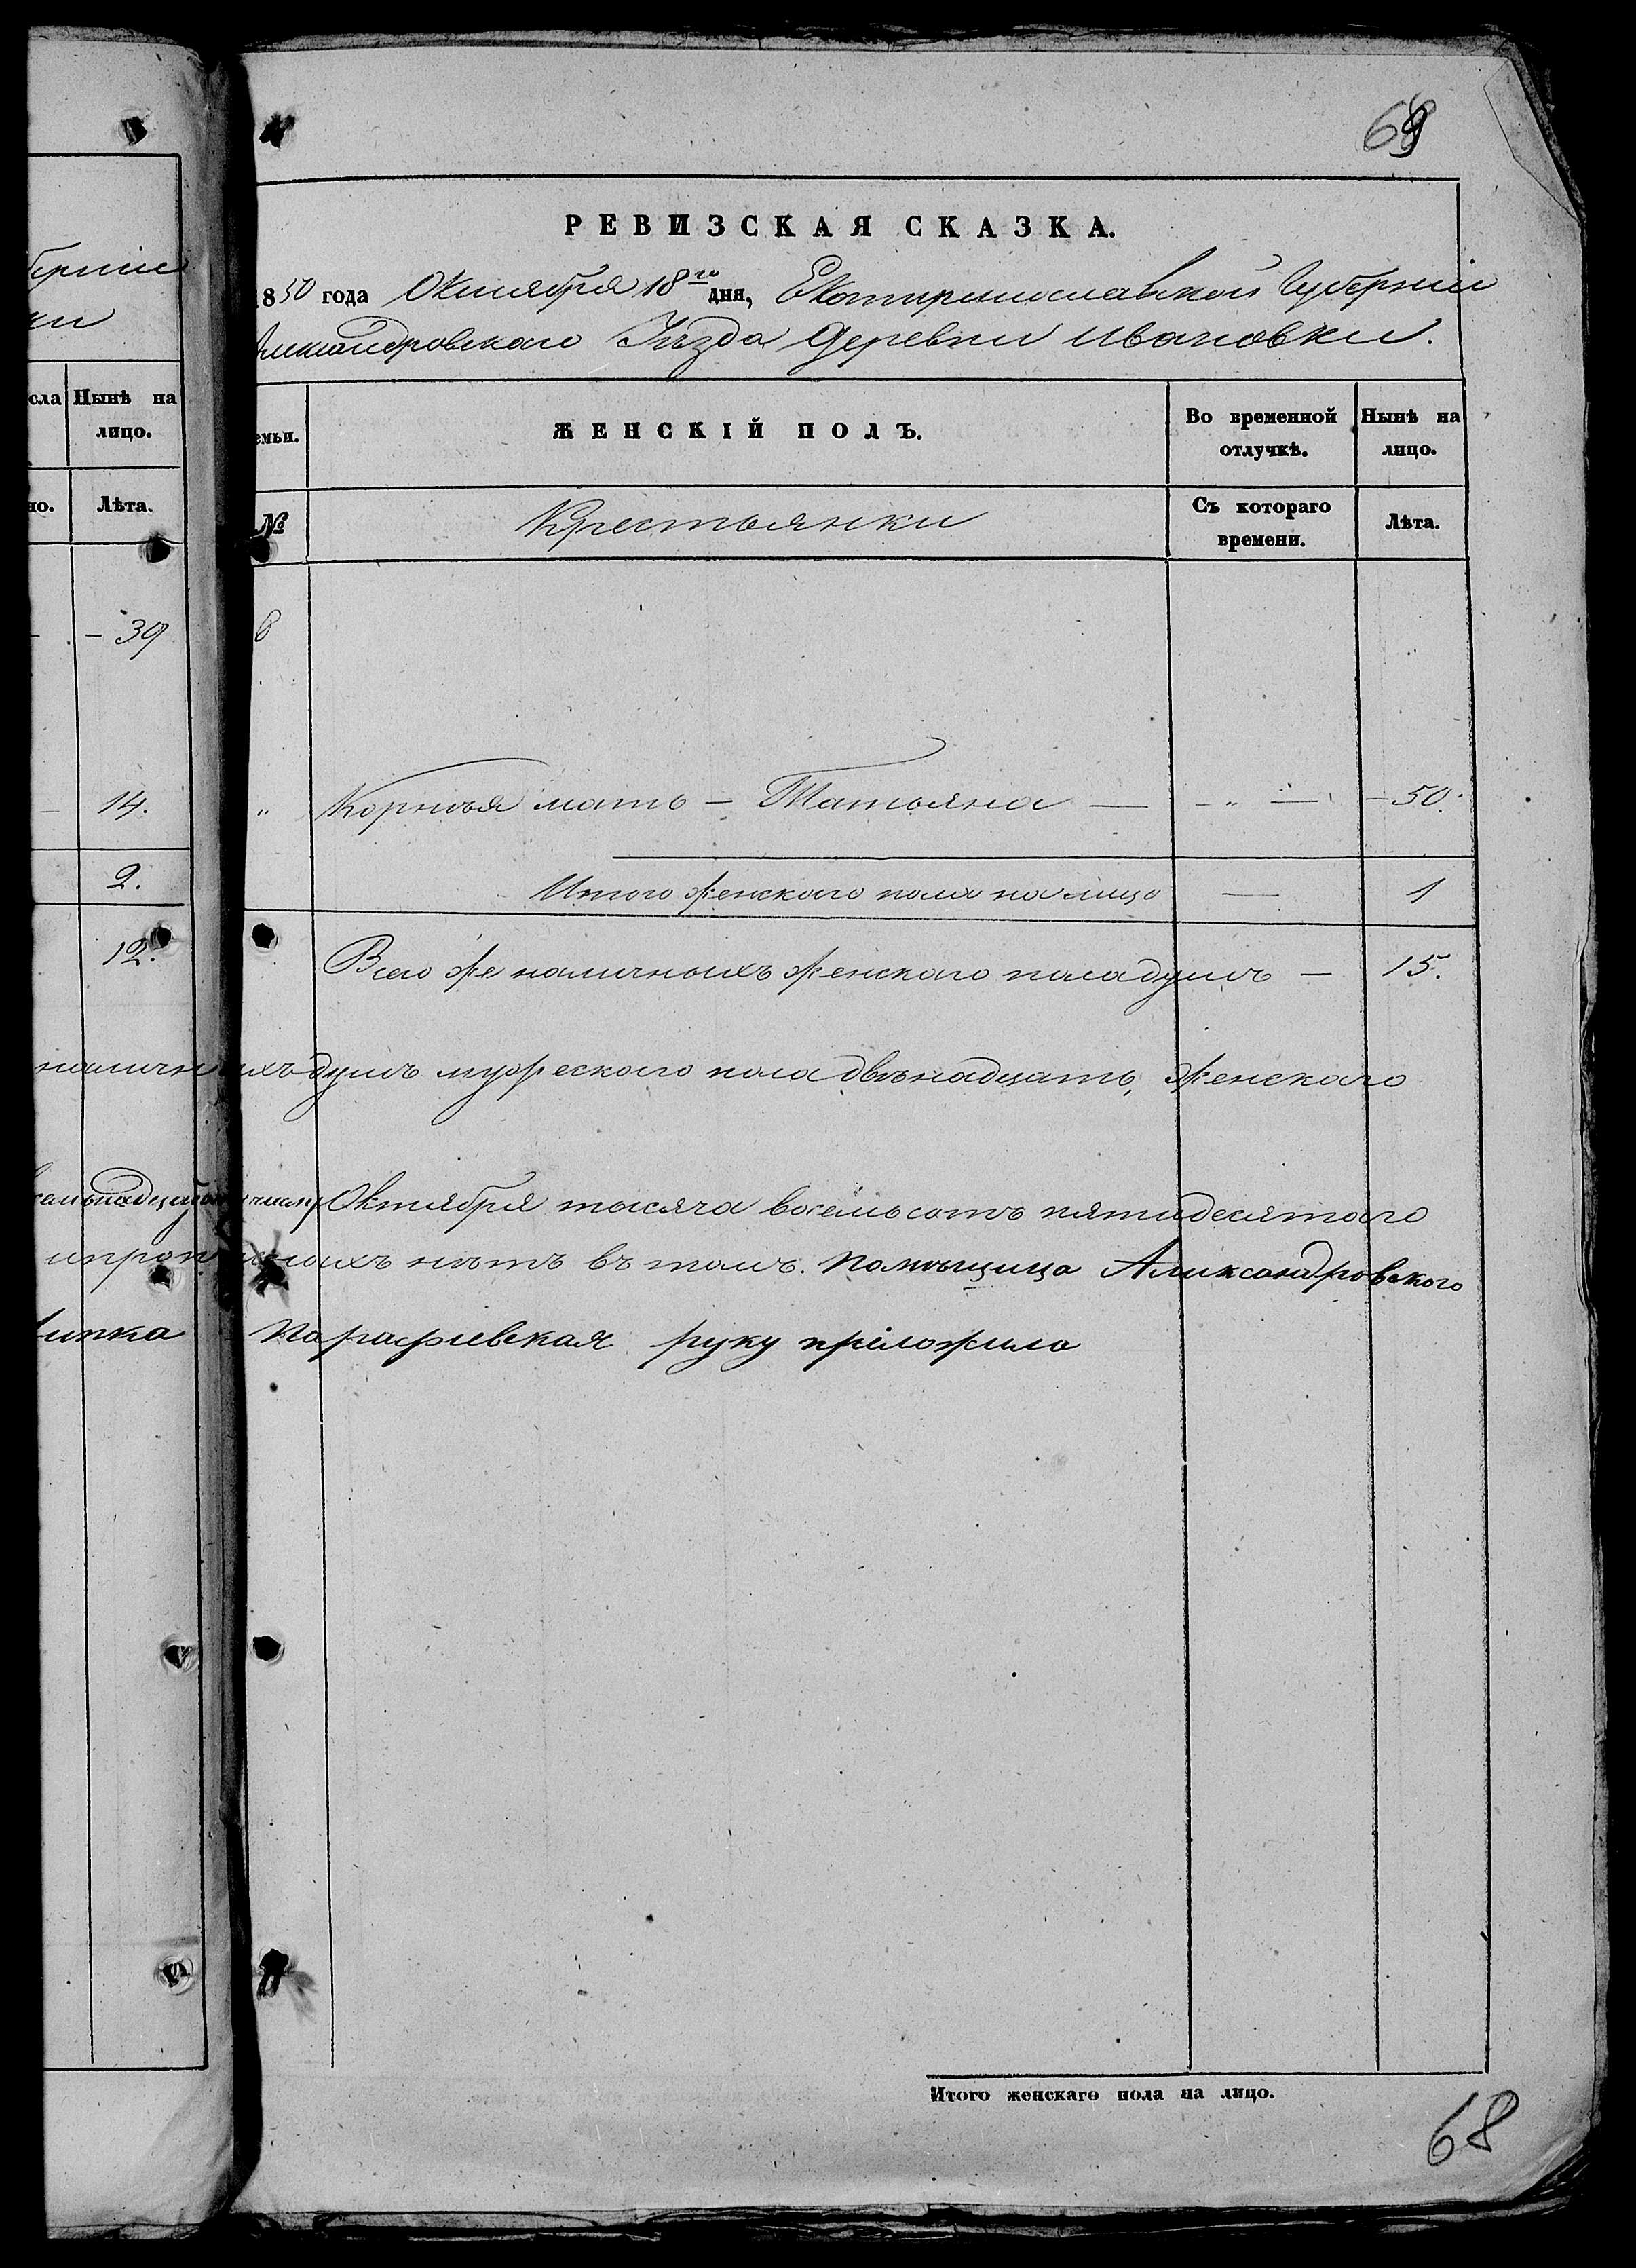 69
РЕВИЗСКАЯ СКАЗКА.
1850 года Октября 18го дня, Екатеринославской Губерніи
Александровскаго Уѣзда деревни Ивановки.
берніи
ки
сла Нынѣ на лицо.
но. Лѣта.
емьи. ЖЕНСКІЙ ПОЛЪ. Во временной отлучкѣ. Нынѣ на лицо.
№ Крестьянки Съ котораго времени. Лѣта.
– 39
6
14.
„ Корнѣя мать – Татьяна — – „ — – 50.
2.
Итого женскаго пола на лицо — 1
12.
Всего же наличныхъ женскаго пола душъ – 15.
наличныхъ душъ мужескаго пола двѣнадцать, женскаго
Октября тысяча восемьсотъ пятидесятаго
нѣтъ въ томъ. Помѣщица Александровского
руку приложила
Итого женскаго пола на лицо.
68